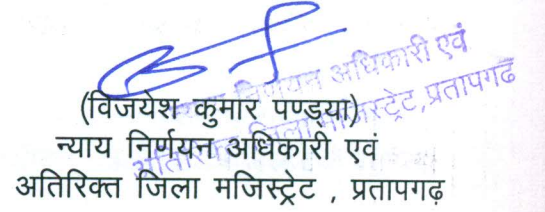 न्याय निर्णयन अधिकारी एवं
अतिरिक्त जिला मजिस्ट्रेट, प्रतापगढ
(विजयेश कुमार पण्ड्या)
न्याय निर्णयन अधिकारी एवं
अतिरिक्त जिला मजिस्ट्रेट , प्रतापगढ़